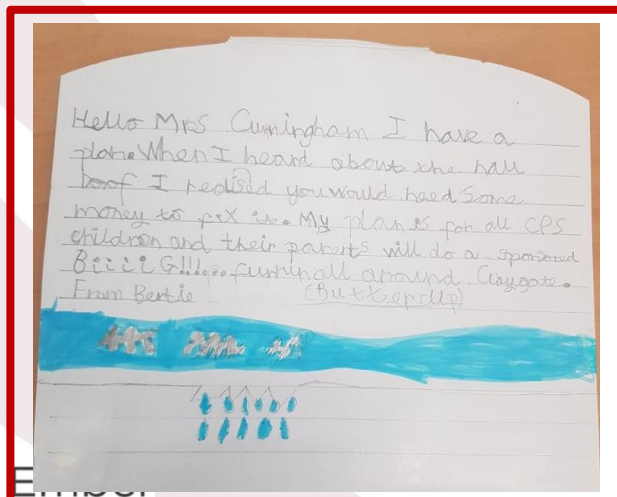 Hello Mrs Cunningham I have a
plan. When I heard about the hall
I realised you would need some
money to fix it. My plan is for all CPS
children and their parents will do a sponsored
BiiiiG!!!... run all around Claygate.
From Bertie (Buttercup)
Ember